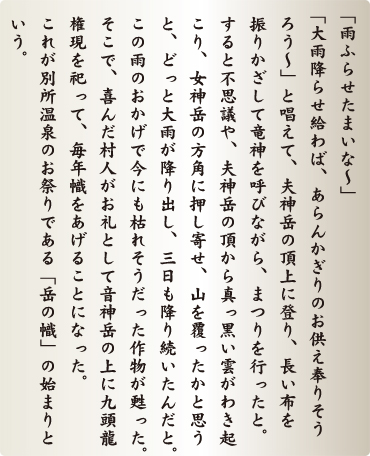 「雨ふらせたまいな～」
「大雨降らせ給わば、あらんかぎりのお供え奉りそう
ろう～」と唱えて、夫神岳の頂上に登り、長い布を
振りかざして竜神を呼びながら、まつりを行ったと。
すると不思議や、夫神岳の頂から真っ黒い雲がわき起
こり、女神岳の方角に押し寄せ、山を覆ったかと思う
と、どっと大雨が降り出し、三日も降り続いたんだと。
この雨のおかげで今にも枯れそうだった作物が甦った。
そこで、喜んだ村人がお礼として音神岳の上に九頭龍
権現を祀って、毎年幟をあげることになった。
これが別所温泉のお祭りである「岳の幟」の始まりと
いう。